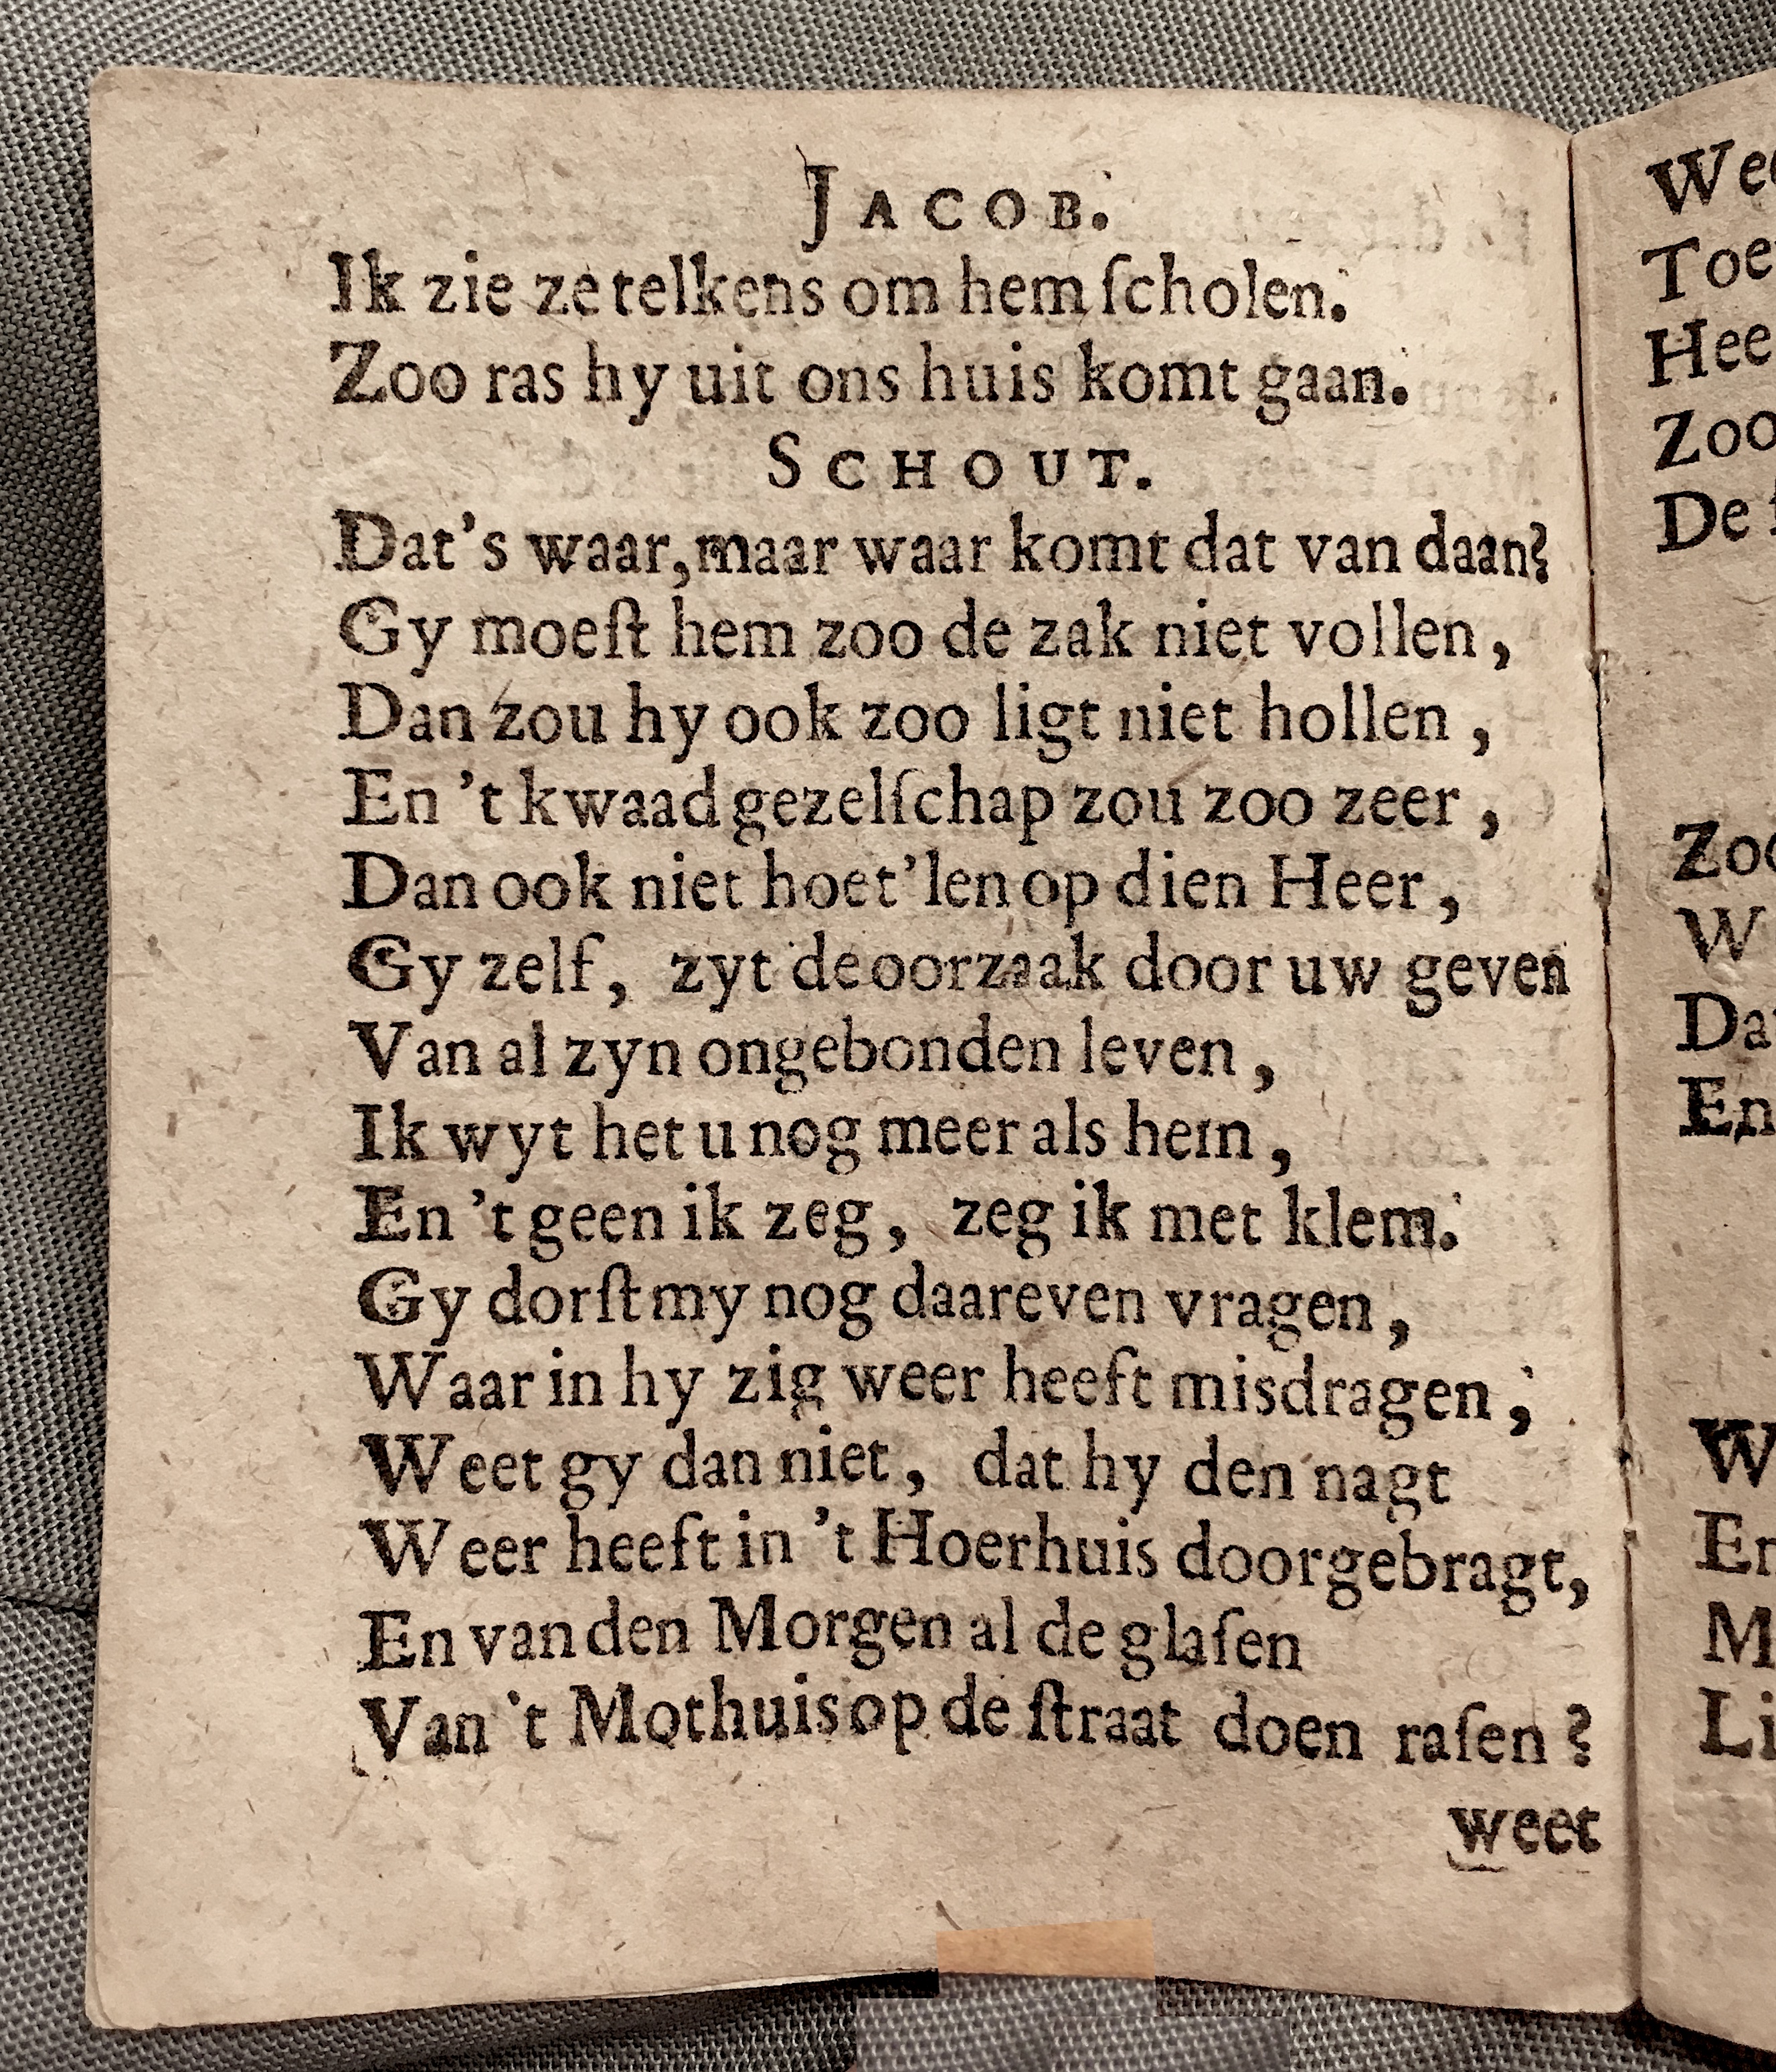 JACOB.
Ik zie ze telkens om hem ſcholen.
Zoo ras hy uit ons huis komt gaan.
SCHOUT.
Dat's waar, maar waar komt dat van daan?
Gy moeſt hem zoo de zak niet vollen,
Dan zou hy ook zoo ligt niet hollen,
En 't kwaad gezelſchap zou zoo zeer,
Dan ook niet hoet'len op dien Heer,
Gy zelf, zyt de oorzaak door uw geven
Van al zyn ongebonden leven,
Ik wyt het u nog meer als hem,
En 't geen ik zeg, zeg ik met klem.
Gy dorſt my nog daareven vragen,
Waar in hy zig weer heeft misdragen,
Weet gy dan niet, dat hy den nagt
Weer heeft in 't Hoerhuis doorgebragt,
En van den Morgen al de glaſen
Van 't Mothuis op de ſtraat doen raſen?
weet
Toe
Hee
Zoo
De
Zoo
W
Da
En
W
En
M
Li